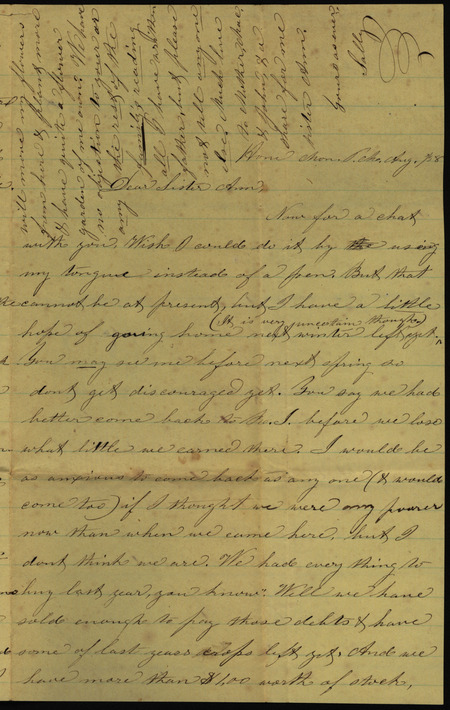 Home Mon. P.M. Aug. 28
Dear Sister Ann,
Now for a chat
with you. Wish I could do it by the using
my tongue instead of a pen. But that
cannot be at present, but I have a little
(It is very uncertain though)
hope of going home next winter left yet.
You may see me before next spring so
dont get discouraged yet. You say we had
better come back to N.J. before we lose
what little we earned there. I would be
as anxious to come back as any one (& would
come too) if I thought we were any poorer
now than when we came here, but I
dont think we are. We had everything to
buy last year, you know. Well we have
sold enough to pay those debts & have
some of last years crops left yet. And we
have more than $100 worth of stock,
will move my flowers
from here & plant more
& have quite a flower
garden of my own. We have
no objection to your or
the rest of the
family reading
all I have written
father, but please
not tell any one
else. Much love
to Mother,
& John & a
share for me
Sister Ann.
Your sister
Sally